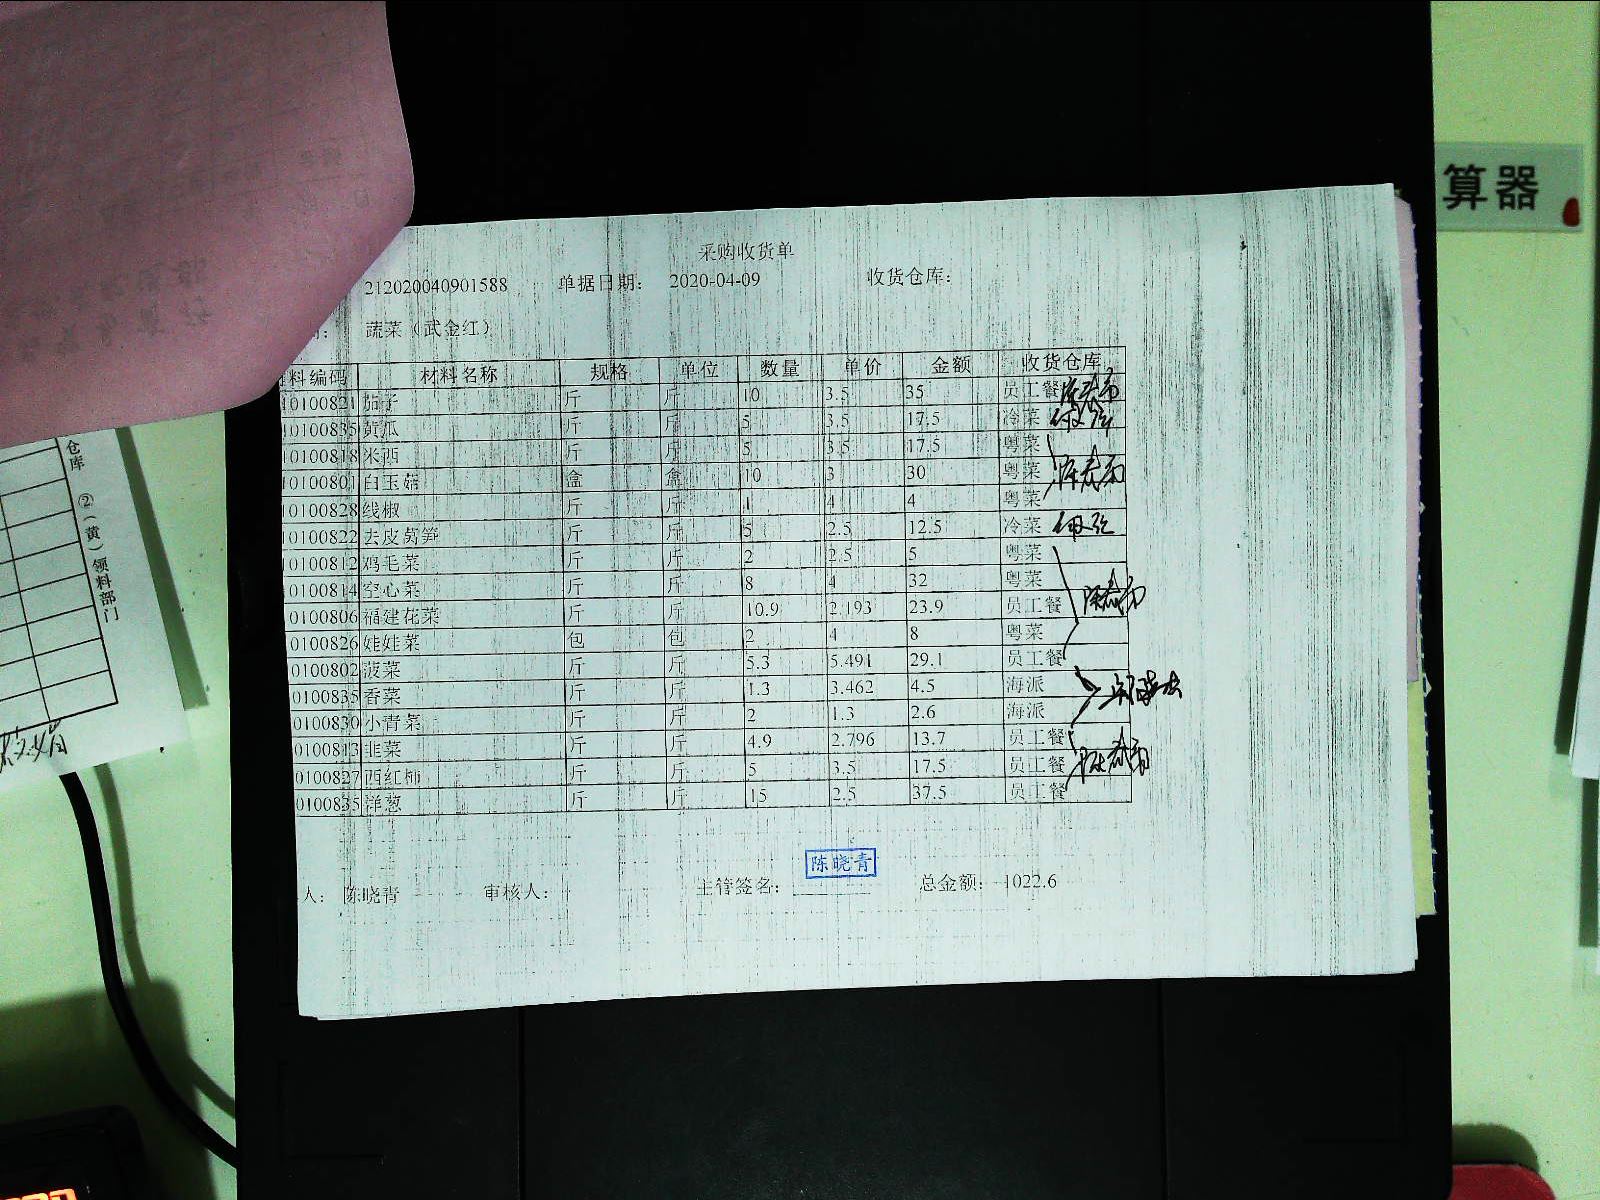 算器
采购收货单
212020040901588 单据日期： 2020-04-09 收货仓库：
蔬菜（武金红）
料编码 材料名称 规格 单位 数量 单价 金额 收货仓库
10100821 茄子 斤 斤 10 3.5 35 员工餐
10100835 黄瓜 斤 斤 5 3.5 17.5 冷菜
10100818 米西 斤 斤 5 3.5 17.5 粤菜
10100801 白玉菇 盒 盒 10 3 30 粤菜
10100828 线椒 斤 斤 1 4 4 粤菜
10100822 去皮莴笋 斤 斤 5 2.5 12.5 冷菜
10100812 鸡毛菜 斤 斤 2 2.5 5 粤菜
10100814 空心菜 斤 斤 8 4 32 粤菜
10100806 福建花菜 斤 斤 10.9 2.193 23.9 员工餐
0100826 娃娃菜 包 包 2 4 8 粤菜
0100802 菠菜 斤 斤 5.3 5.491 29.1 员工餐
0100835 香菜 斤 斤 1.3 3.462 4.5 海派
0100830 小青菜 斤 斤 2 1.3 2.6 海派
0100813 韭菜 斤 斤 4.9 2.796 13.7 员工餐
0100827 西红柿 斤 斤 5 3.5 17.5 员工餐
0100835 洋葱 斤 斤 15 2.5 37.5 员工餐
陈晓青
人： 陈晓青 审核人： 主管签名： 总金额： 1022.6
仓库 ②（黄）领料部门